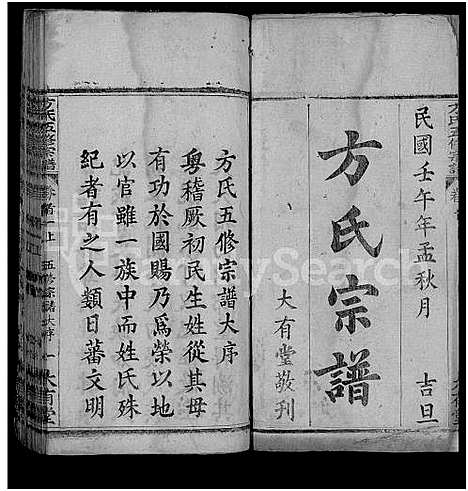 民國壬午年孟秋月
吉旦
方氏宗譜
大有堂敬刊
方氏五修宗譜大序
粵稽厥初民生姓從其母
有功於國賜乃爲榮以地
以官雖一族中而姓氏殊
紀者有之人類日蕃文明
方氏五修宗譜
卷首上
五修宗譜大序
一
大有堂
FamilySearch